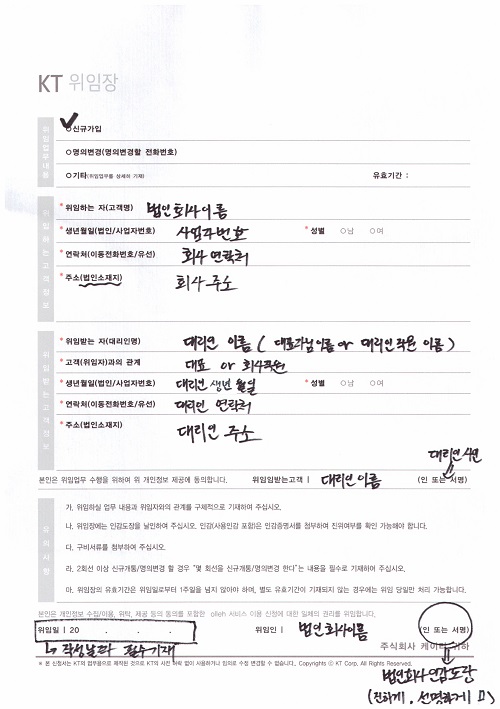 KT 위임장
위임업무내용
✓
○신규가입
○명의변경(명의변경할 전화번호)
○기타(위임업무를 상세히 기재) 유효기간 :
위임하는고객정보
*위임하는 자(고객명) 법인회사이름
*생년월일(법인/사업자번호) 사업자번호 *성별 ○남 ○여
*연락처(이동전화번호/유선) 회사 연락처
*주소(법인소재지) 회사 주소
위임받는고객정보
*위임받는 자(대리인명) 대리인 이름 ( 대표자님이름 or 대리인 직원 이름 )
*고객(위임자)과의 관계 대표 or 회사직원
*생년월일(법인/사업자번호) 대리인 생년월일 *성별 ○남 ○여
*연락처(이동전화번호/유선) 대리인 연락처
*주소(법인소재지) 대리인 주소
대리인 사인
본인은 위임업무 수행을 위하여 위 개인정보 제공에 동의합니다. 위임받는고객 | 대리인이름 (인 또는 서명)
유의사항
가. 위임하실 업무 내용과 위임자와의 관계를 구체적으로 기재하여 주십시오.
나. 위임장에는 인감도장을 날인하여 주십시오. 인감(사용인감 포함)은 인감증명서를 첨부하여 진위여부를 확인 가능해야 합니다.
다. 구비서류를 첨부하여 주십시오.
라. 2회선 이상 신규개통/명의변경 할 경우 "몇 회선을 신규개통/명의변경 한다"는 내용을 필수로 기재하여 주십시오.
마. 위임장의 유효기간은 위임일로부터 1주일을 넘지 않아야 하며, 별도 유효기간이 기재되지 않는 경우에는 위임 당일만 처리 가능합니다.
본인은 개인정보 수집/이용, 위탁, 제공 등의 동의를 포함한 olleh 서비스 이용 신청에 대한 일체의 권리를 위임합니다.
위임일 | 20 . . . 위임인 | 법인회사이름 (인 또는 서명)
↳ 작성날짜 필수기재 주식회사 케이티 귀하
※ 본 신청서는 KT의 업무용으로 제작된 것으로 KT의 사전 허락 없이 사용하거나 임의로 수정 변경할 수 없습니다. Copyrights ⓒ KT Corp. All Rights Reserved.
법인회사인감도장
(진하게, 선명하게 !!)